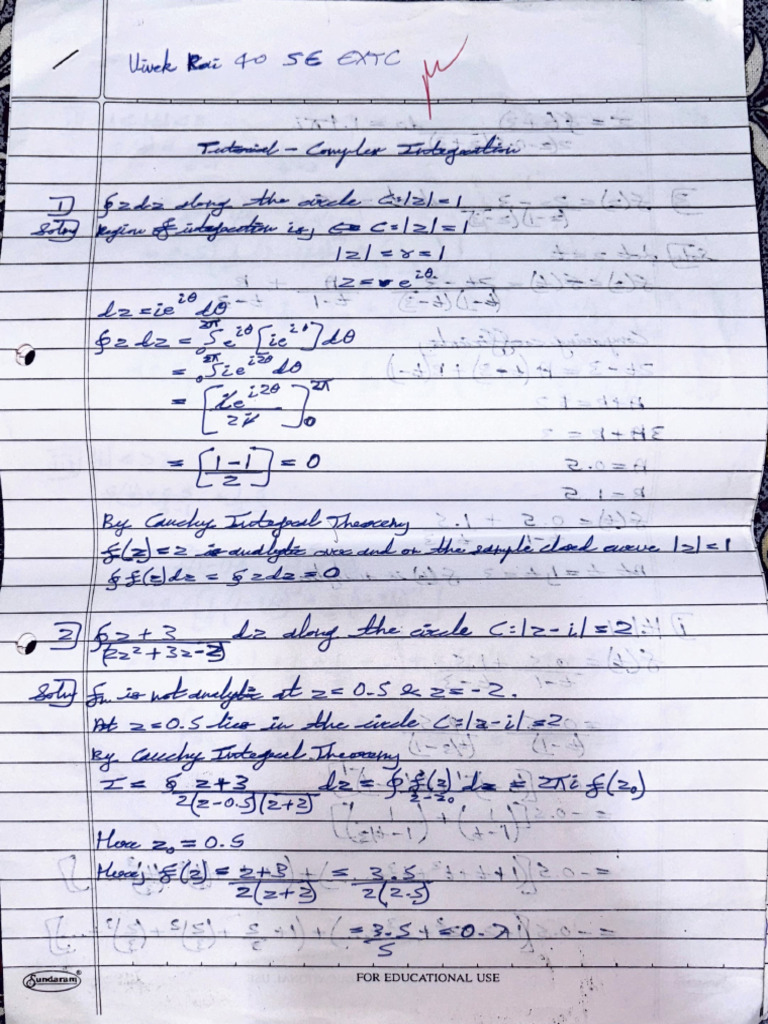 Vivek Rai 40 SE EXTC
Tutorial - Complex Integration
1] ∮zdz along the circle C:|z|=1
Soln] Region of integration is, C=|z|=1
|z|=r=1
z=re^{iθ}
dz=ie^{iθ} dθ
∮z dz = ₀∫^{2π} e^{iθ} [ie^{iθ}] dθ
= ₀∫^{2π} ie^{i2θ} dθ
= [ie^{i2θ}/2i]₀^{2π}
= [(1-1)/2] = 0
By Cauchy Integral Theorem
f(z)=z is analytic over and on the sample closed curve |z|=1
∮f(z)dz = ∮zdz=0
2] ∮(z+3)/(2z²+3z-2) dz along the circle C:|z-i|=2
Soln] fn is not analytic at z=0.5 & z=-2.
At z=0.5 lies in the circle C=|z-i|=2
By Cauchy Integral Theorem
I = ∮(z+3)/(2(z-0.5)(z+2)) dz = ∮f(z)/(z-z₀) dz = 2πi f(z₀)
Here z₀=0.5
Here, f(z) = (z+3)/(2(z+2)) = 3.5/(2(2.5))
= 3.5/5 = 0.7
Sundaram
FOR EDUCATIONAL USE